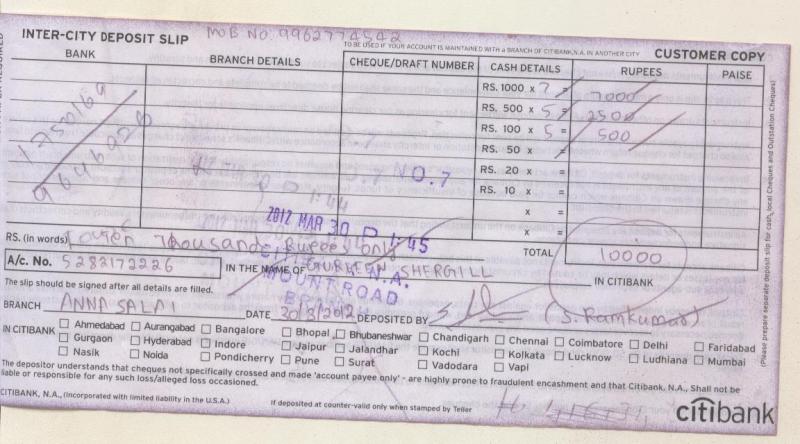 MOB NO. 9962774542
INTER-CITY DEPOSIT SLIP
TO BE USED IF YOUR ACCOUNT IS MAINTAINED WITH a BRANCH OF CITIBANK,N.A. IN ANOTHER CITY
CUSTOMER COPY
BANK BRANCH DETAILS CHEQUE/DRAFT NUMBER CASH DETAILS RUPEES PAISE
RS. 1000 x 7 = 7000
RS. 500 x 5 = 2500
RS. 100 x 5 = 500
RS. 50 x =
RS. 20 x =
RS. 10 x =
x =
x =
NO.7
2012 MAR 30 P 1:45
RS. (in words) Thousands Rupees only
TOTAL 10000
A/c. No. 5282172226 IN THE NAME OF GURLEEN SHERGILL IN CITIBANK
N.A.
MOUNT ROAD
BRANCH
The slip should be signed after all details are filled.
BRANCH ANNA SALAI DATE 30/3/2012 DEPOSITED BY (S. Ramkumar)
IN CITIBANK Ahmedabad Aurangabad Bangalore Bhopal Bhubaneshwar Chandigarh Chennai Coimbatore Delhi Faridabad
Gurgaon Hyderabad Indore Jaipur Jalandhar Kochi Kolkata Lucknow Ludhiana Mumbai
Nasik Noida Pondicherry Pune Surat Vadodara Vapi
The depositor understands that cheques not specifically crossed and made 'account payee only' - are highly prone to fraudulent encashment and that Citibank, N.A., Shall not be
liable or responsible for any such loss/alleged loss occasioned.
CITIBANK, N.A., (Incorporated with limited liability in the U.S.A.) If deposited at counter-valid only when stamped by Teller
citibank
(Please prepare separate deposit slip for cash, local Cheques and Outstation Cheques)